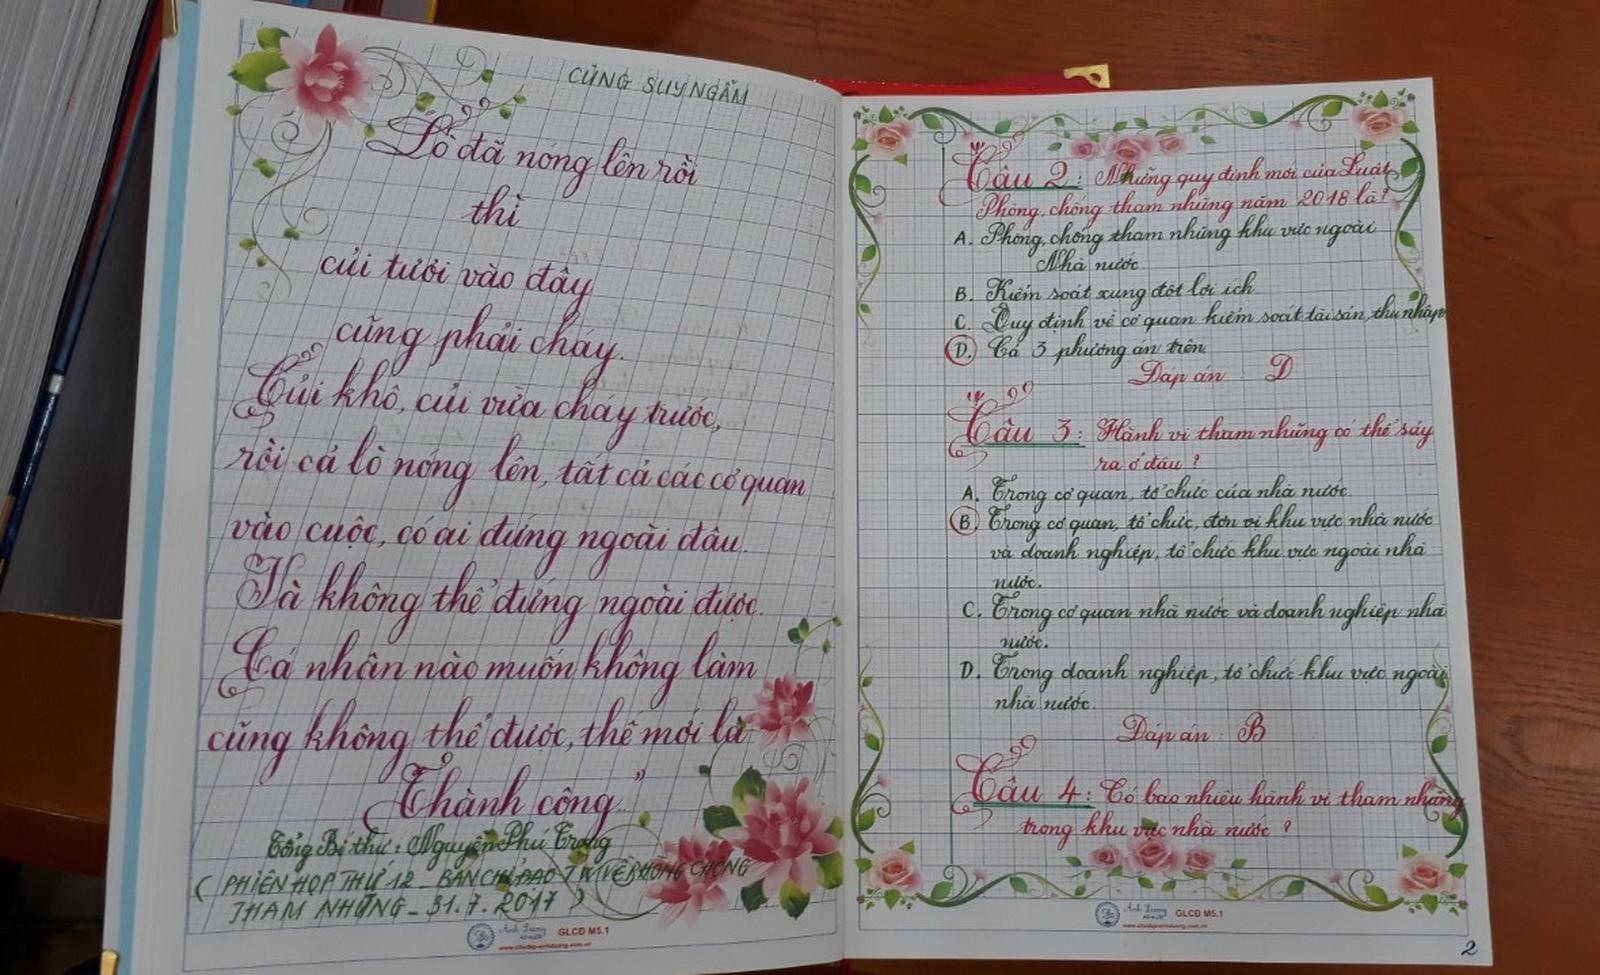 CÙNG SUY NGẪM
Lò đã nóng lên rồi
thì
củi tươi vào đây
cũng phải cháy.
Củi khô, củi vừa cháy trước,
rồi cả lò nóng lên, tất cả các cơ quan
vào cuộc, có ai đứng ngoài đâu.
Và không thể đứng ngoài được.
Cá nhân nào muốn không làm
cũng không thể được, thế mới là
Thành công"
Tổng Bí thư: Nguyễn Phú Trọng
( PHIÊN HỌP THỨ 12 _ BAN CHỈ ĐẠO TW VỀ PHÒNG CHỐNG
THAM NHŨNG _ 31.7.2017 )
Ánh Dương
GLCĐ M5.1
www.chudep-anhduong.com.vn
Câu 2: Những quy định mới của Luật
Phòng, chống tham nhũng năm 2018 là?
A. Phòng, chống tham nhũng khu vực ngoài
Nhà nước
B. Kiểm soát xung đột lợi ích
C. Quy định về cơ quan kiểm soát tài sản, thu nhập
D. Cả 3 phương án trên
Đáp án : D
Câu 3: Hành vi tham nhũng có thể sảy
ra ở đâu ?
A. Trong cơ quan, tổ chức của nhà nước
B Trong cơ quan, tổ chức, đơn vị khu vực nhà nước
và doanh nghiệp, tổ chức khu vực ngoài nhà
nước.
C. Trong cơ quan nhà nước và doanh nghiệp nhà
nước.
D. Trong doanh nghiệp, tổ chức khu vực ngoài
nhà nước.
Đáp án : B
Câu 4: Có bao nhiêu hành vi tham nhũng
trong khu vực nhà nước ?
Ánh Dương
GLCĐ M5.1
www.chudep-anhduong.com.vn
2